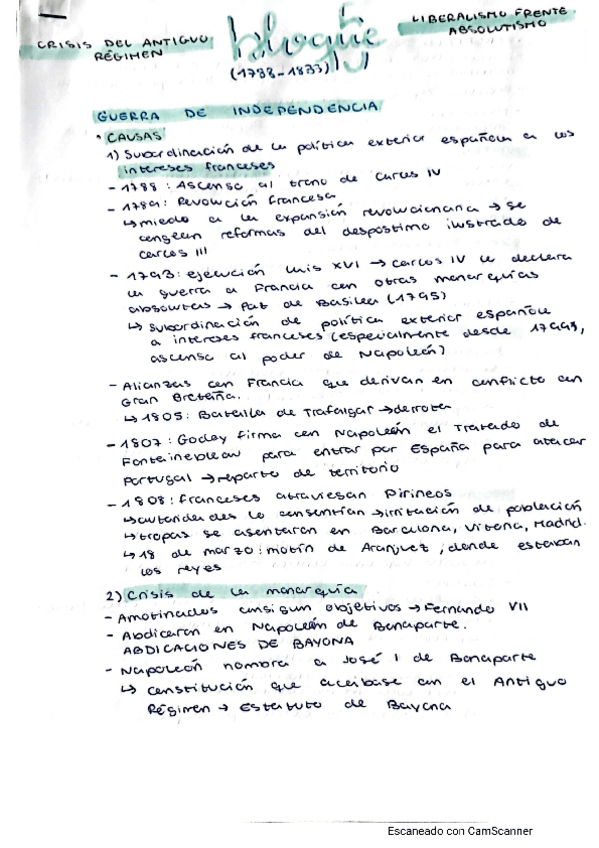 CRISIS DEL ANTIGUO
RÉGIMEN
bloque IV
(1788-1833)
LIBERALISMO FRENTE
ABSOLUTISMO
GUERRA DE INDEPENDENCIA
• CAUSAS
1) Subordinación de la política exterior española a los
intereses franceses
- 1788: Ascenso al trono de Carlos IV
- 1789: Revolución Francesa
↳ miedo a la expansión revolucionaria → se
congelan reformas del despostimo ilustrado de
Carlos III
- 1793: ejecución Luis XVI → Carlos IV le declara
la guerra a Francia con otras monarquías
absolutas → Paz de Basilea (1795)
↳ Subordinación de política exterior española
a intereses franceses (especialmente desde
ascenso al poder de Napoleón)
- Alianzas con Francia que derivan en conflicto con
Gran Bretaña.
↳ 1805: Batalla de Trafalgar → derrota
- 1807: Godoy firma con Napoleón el Tratado de
Fontainebleau para entrar por España para atacar
Portugal → reparto de territorio
- 1808: franceses atraviesan Pirineos
↳ autoridades lo consentían → irritación de población
↳ tropas se asentaron en Barcelona, Vitoria, Madrid.
↳ 18 de marzo: motín de Aranjuez, donde estaban
los reyes
2) Crisis de la monarquía
- Amotinados consigun objetivos → Fernando VII
- Abdicaron en Napoleón de Bonaparte.
ABDICACIONES DE BAYONA
- Napoleón nombra a José I de Bonaparte
↳ constitución que acabase con el Antiguo
Régimen → Estatuto de Bayona
Escaneado con CamScanner